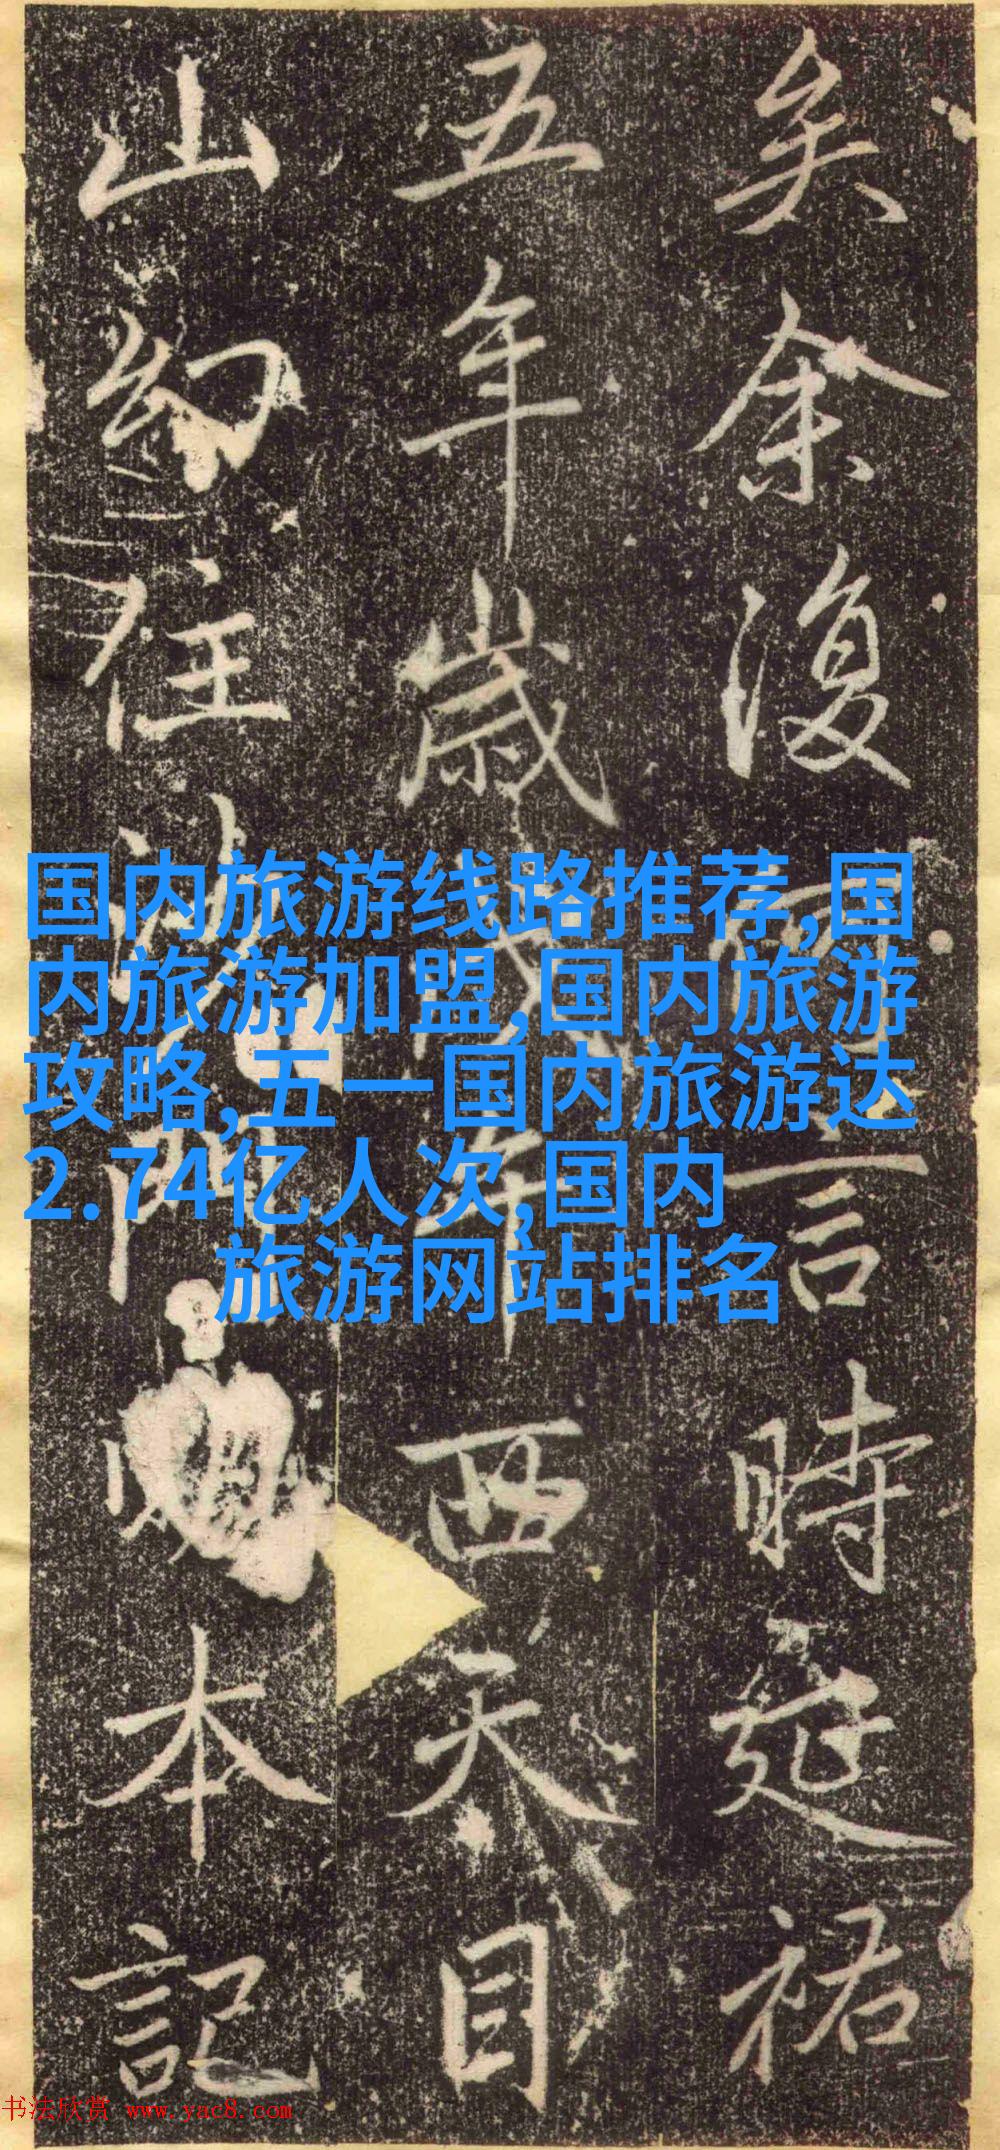 矣余復何言時延祐
五年歲戊午西天目
山幻住沙門本記
国内旅游线路推荐,国
内旅游加盟,国内旅游
攻略,五一国内旅游达
2.74亿人次,国内
旅游网站排名
书法欣赏 www.yac8.com